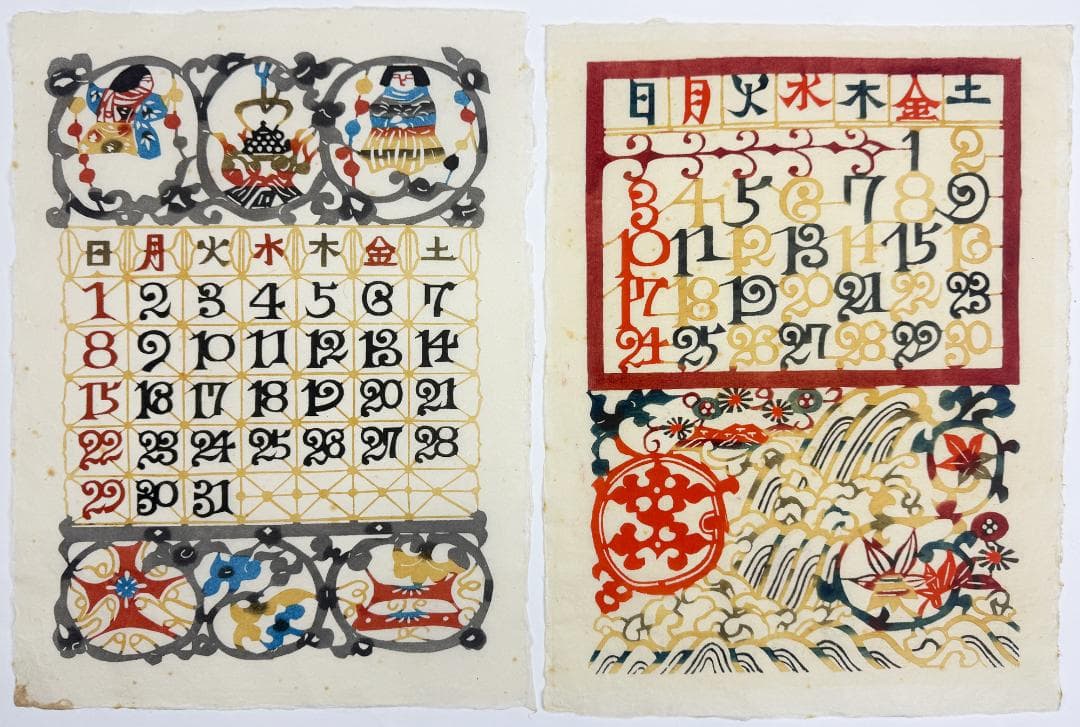 日 月 火 水 木 金 土
1 2 3 4 5 6 7
8 9 10 11 12 13 14
15 16 17 18 19 20 21
22 23 24 25 26 27 28
29 30 31
日 月 火 水 木 金 土
1 2
3 4 5 6 7 8 9
10 11 12 13 14 15 16
17 18 19 20 21 22 23
24 25 26 27 28 29 30